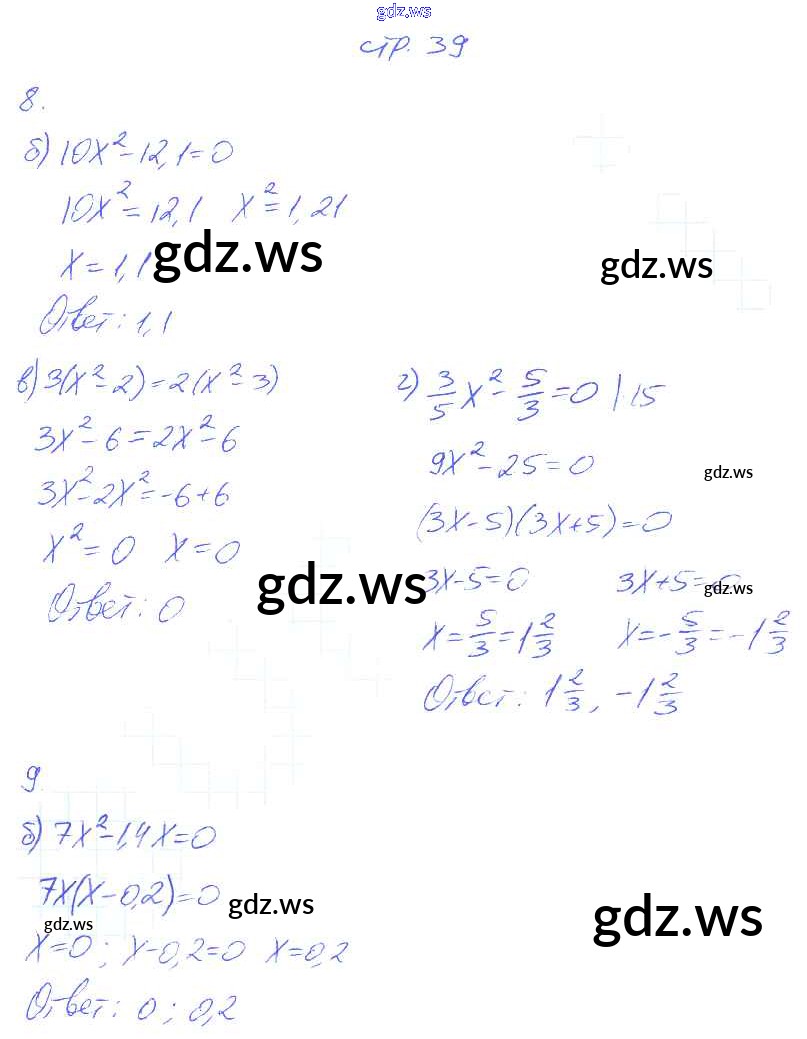 gdz.ws
стр. 39
8.
б) 10x² - 12,1 = 0
10x² = 12,1 x² = 1,21
x = 1,1
gdz.ws
gdz.ws
Ответ: 1,1
в) 3(x² - 2) = 2(x² - 3)
3x² - 6 = 2x² - 6
3x² - 2x² = -6 + 6
x² = 0 x = 0
Ответ: 0
г) 3/5 x² - 5/3 = 0 | 15
9x² - 25 = 0
gdz.ws
(3x - 5)(3x + 5) = 0
3x - 5 = 0 3x + 5 = 0
gdz.ws
gdz.ws
x = 5/3 = 1 2/3 x = - 5/3 = -1 2/3
Ответ: 1 2/3, -1 2/3
9
б) 7x² - 1,4x = 0
7x(x - 0,2) = 0
gdz.ws
gdz.ws
gdz.ws
x = 0; x - 0,2 = 0 x = 0,2
Ответ: 0; 0,2